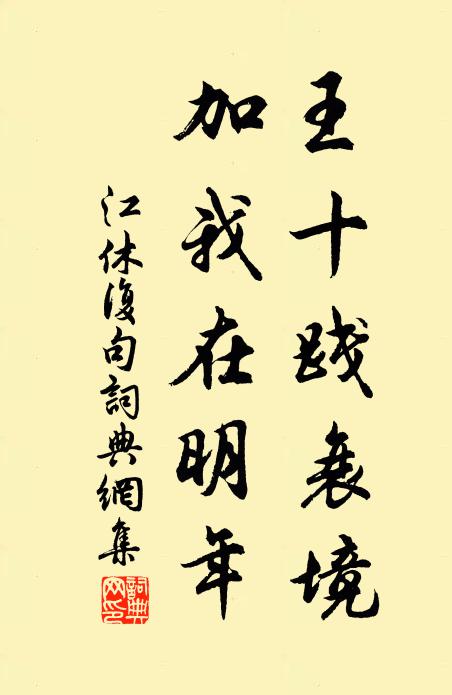 王十践衰境
加我在明年
江休復句詞典網集
詞典網印